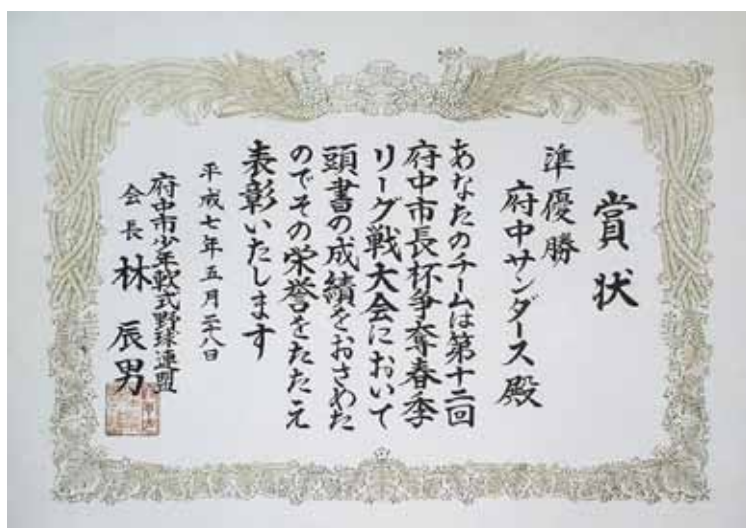 賞状
準優勝
府中サンダース殿
あなたのチームは第十二回
府中市長杯争奪春季
リーグ戦大会において
頭書の成績をおさめた
のでその栄誉をたたえ
表彰いたします
平成七年五月二十八日
府中市少年軟式野球連盟
会長 林 辰男